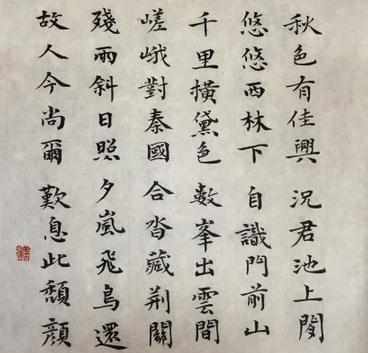 秋色有佳興 況君池上閑
悠悠西林下 自識門前山
千里橫黛色 數峯出雲間
嵯峨對秦國 合沓藏荊關
殘雨斜日照 夕嵐飛鳥還
故人今尚爾 歎息此頹顏